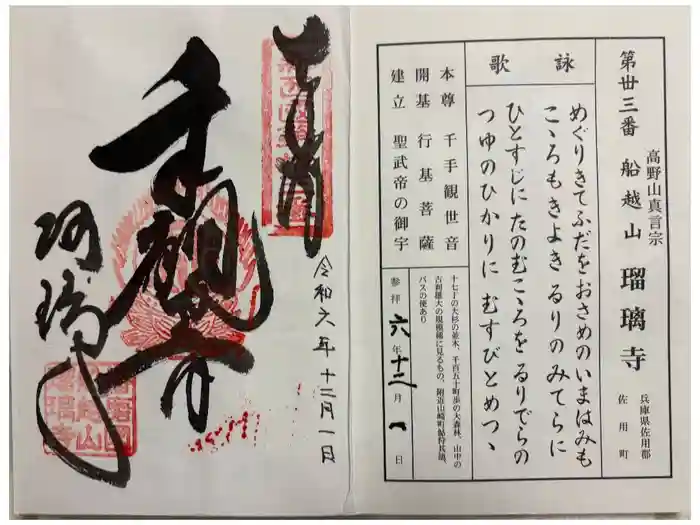 高野山真言宗
第卅三番 船越山 瑠璃寺
兵庫県佐用郡
佐用町
詠歌
めぐりきてふだをおさめのいまはみも
こゝろもきよき るりのみてらに
ひとすじにたのむこゝろをるりでらの
つゆのひかりに むすびとめつゝ
本尊 千手観世音
開基 行基菩薩
建立 聖武帝の御宇
十七丁の大杉の並木、千百五十町歩の大森林、山中の
古刹雄大の規模稀に見るもの、附近山崎町鮎狩其頭、
バスの便あり
参拝 六年十二月一日
奉拝
令和六年十二月一日
千手観音
瑠璃寺